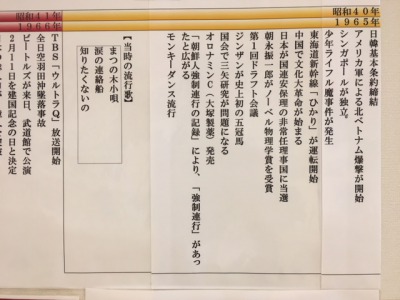 昭和40年
1965年
日韓基本条約締結
アメリカ軍による北ベトナム爆撃が開始
シンガポールが独立。
少年ライフル魔事件が発生
東海道新幹線「ひかり」が運転開始
中国で文化大革命が始まる
日本が国連安保理の非常任理事国に当選
朝永振一郎がノーベル物理学賞を受賞
第１回ドラフト会議
シンザンが史上初の五冠馬
国会で三矢研究が問題になる
オロナミンC（大塚製薬）発売
「朝鮮人強制連行の記録」により、「強制連行」があっ
たと広がる
モンキーダンス流行
【当時の流行歌】
まつの木小唄
涙の連絡船
知りたくないの
昭和41年
1966年
TBS『ウルトラQ』放送開始
全日空羽田沖墜落事故
ビートルズが来日、武道館で公演
2月11日を建国記念の日と決定